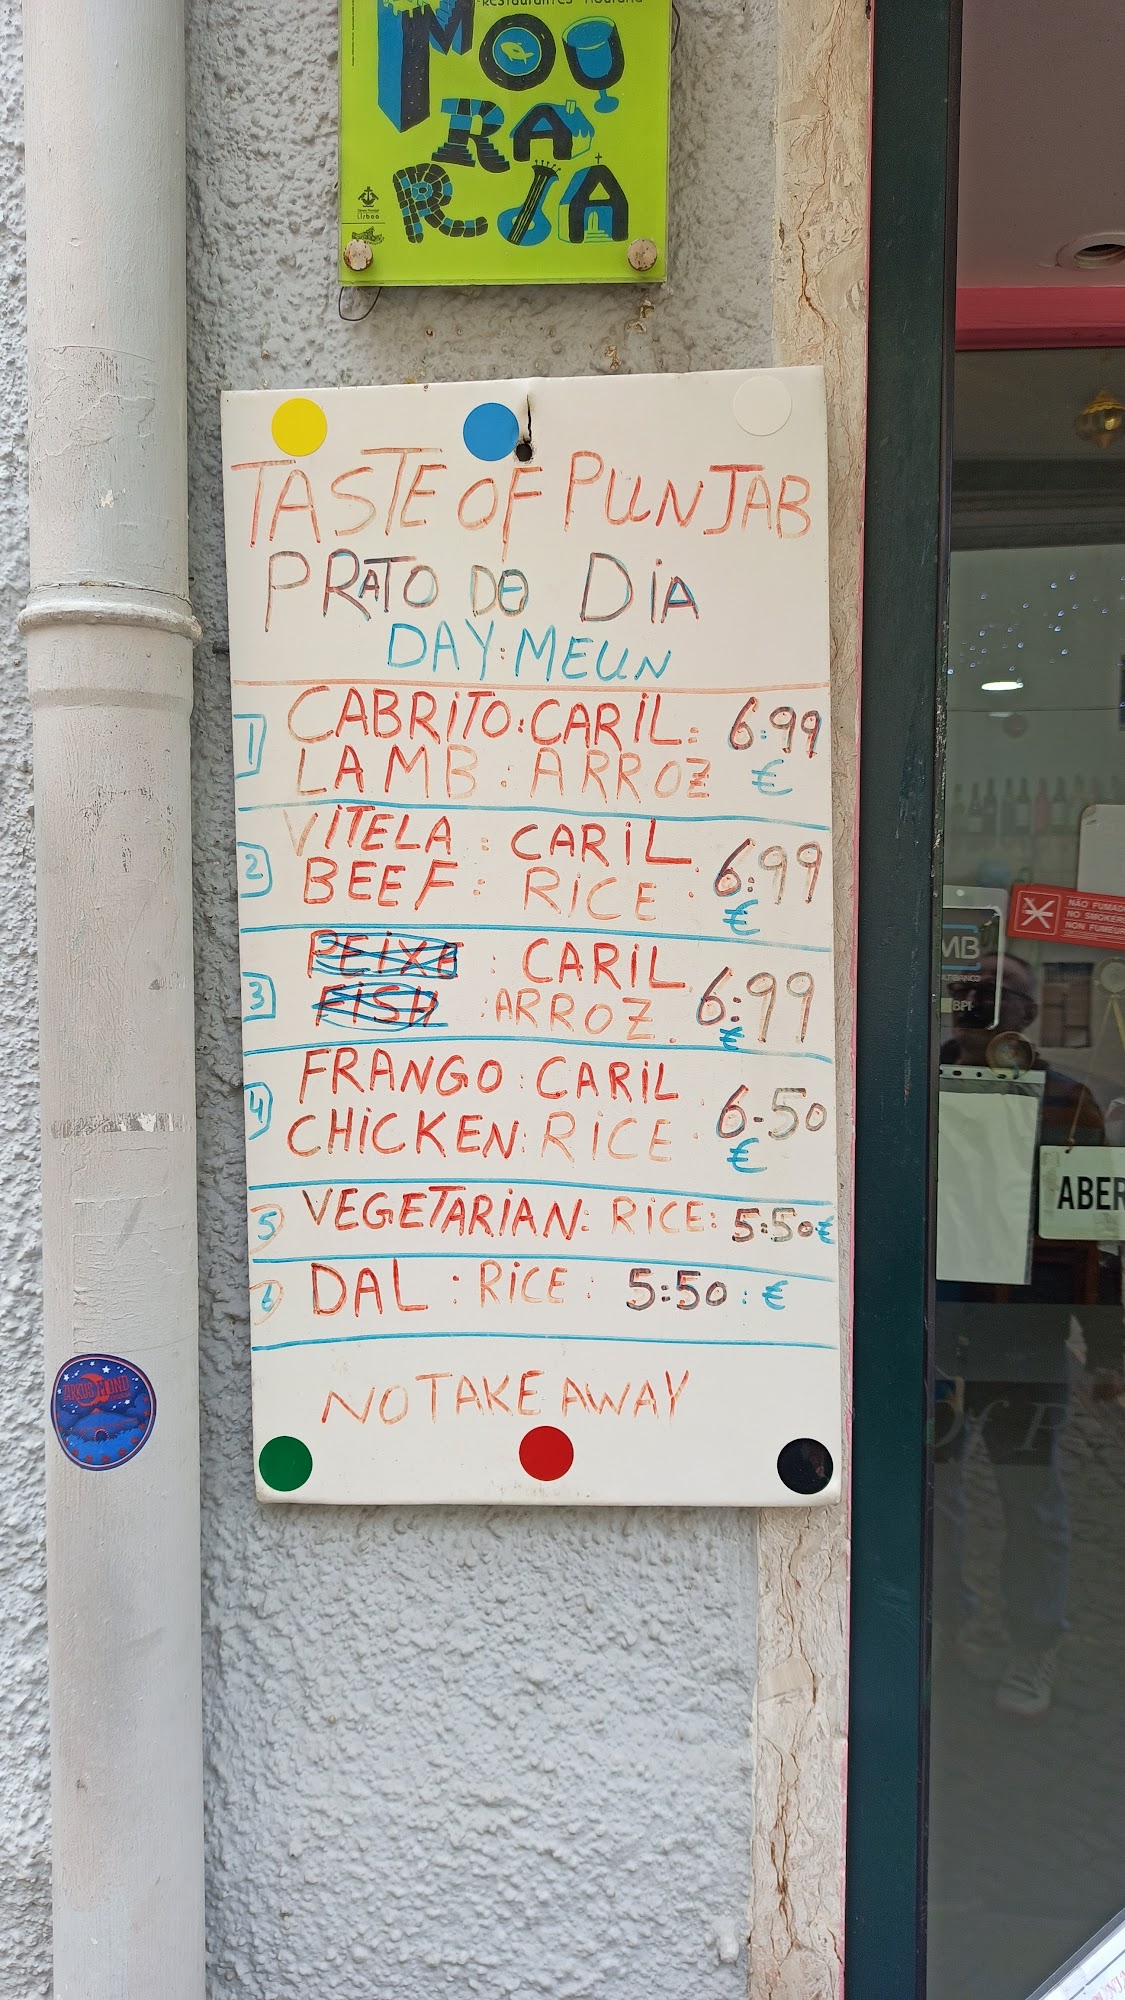 Restaurantes Mouraria
MOU
RA
RIA
Lisboa
TASTE OF PUNJAB
PRATO DO DIA
DAY: MEUN
1 CABRITO: CARIL: 6:99
LAMB: ARROZ €
2 VITELA: CARIL
BEEF: RICE: 6:99 €
3 PEIXE: CARIL
FISH: ARROZ. 6:99 €
4 FRANGO: CARIL
CHICKEN: RICE: 6-50 €
5 VEGETARIAN: RICE: 5:50€
6 DAL: RICE: 5:50: €
NO TAKE AWAY
NÃO FUMAD
NO SMOKER
NON FUMEUR
MB
BPI
ABER